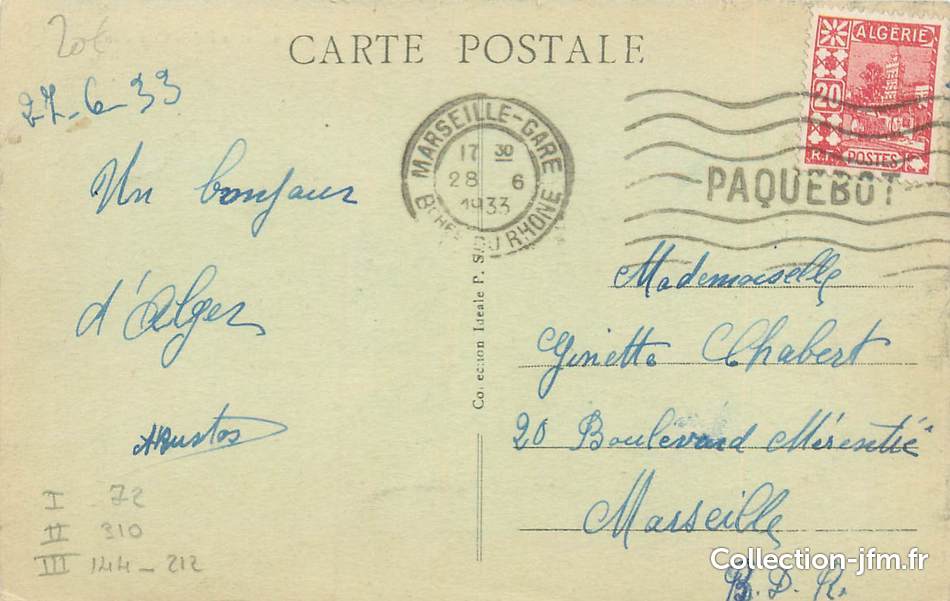 20€
CARTE POSTALE
27-6-33
Un bonjour
d'Alger
ALGÉRIE
20
R.F. POSTES
MARSEILLE-GARE
17 30
28 6
1933
BCHES DU RHONE
PAQUEBOT
Mademoiselle
Ginette Chabert
20 Boulevard
Marseille
B.D.R.
Collection Ideale P. S.
I 72
II 310
III 144-212
Collection-jfm.fr